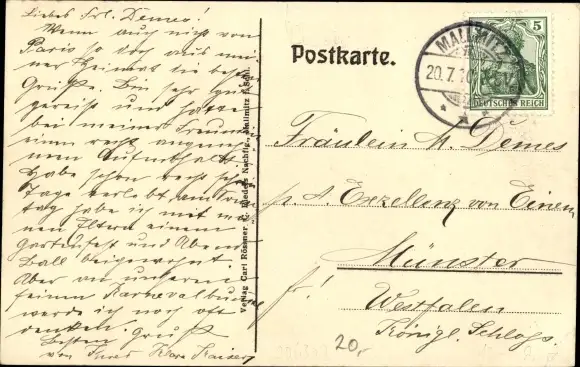 Liebes Frl. Demes!
Wenn auch nicht von
Paris so doch aus mei-
ner Heimat die besten
Grüße. Bin sehr gut
gereist und hatte
bei meiner Freundin
einen recht angeneh-
men Aufenthalt.
Habe schon recht schöne
Tage verlebt, am
tag habe ich mit mei-
nen Eltern einem
Gartenfest und Abend
Ball beigewohnt
Aber an unseren
feinen Karnevalbum
werde ich noch oft
denken.
Besten Gruß
von Ihrer Klara Kaiser
Verlag Carl Rössner, Nachflg., Mallmitz i. Schl.
Postkarte.
MALLMITZ
20.7.10
5
DEUTSCHES REICH
Fräulein M. Demes
p. A. Exzellenz von Einem
Münster
fr!
Westfalen
Königl. Schloß.
20,-